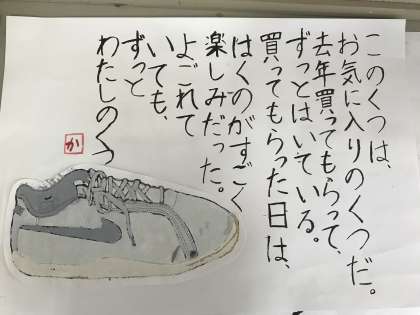 このくつは、
お気に入りのくつだ。
去年買ってもらって、
ずっとはいている。
買ってもらった日は、
はくのがすごく
楽しみだった。
よごれて
いても、
ずっと
わたしのくつ
か